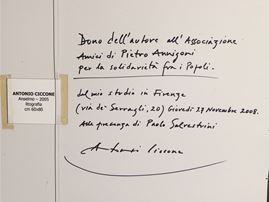 Dono dell'autore all'Associazione
Amici di Pietro Annigoni
per la solidarietà fra i Popoli.
dal mio studio in Firenze
(via de' Serragli, 20) Giovedì 27 Novembre 2008.
Alla presenza di Paolo Salvestrini
Antonio Ciccone
ANTONIO CICCONE
Anselmo – 2005
litografia
cm 60x80